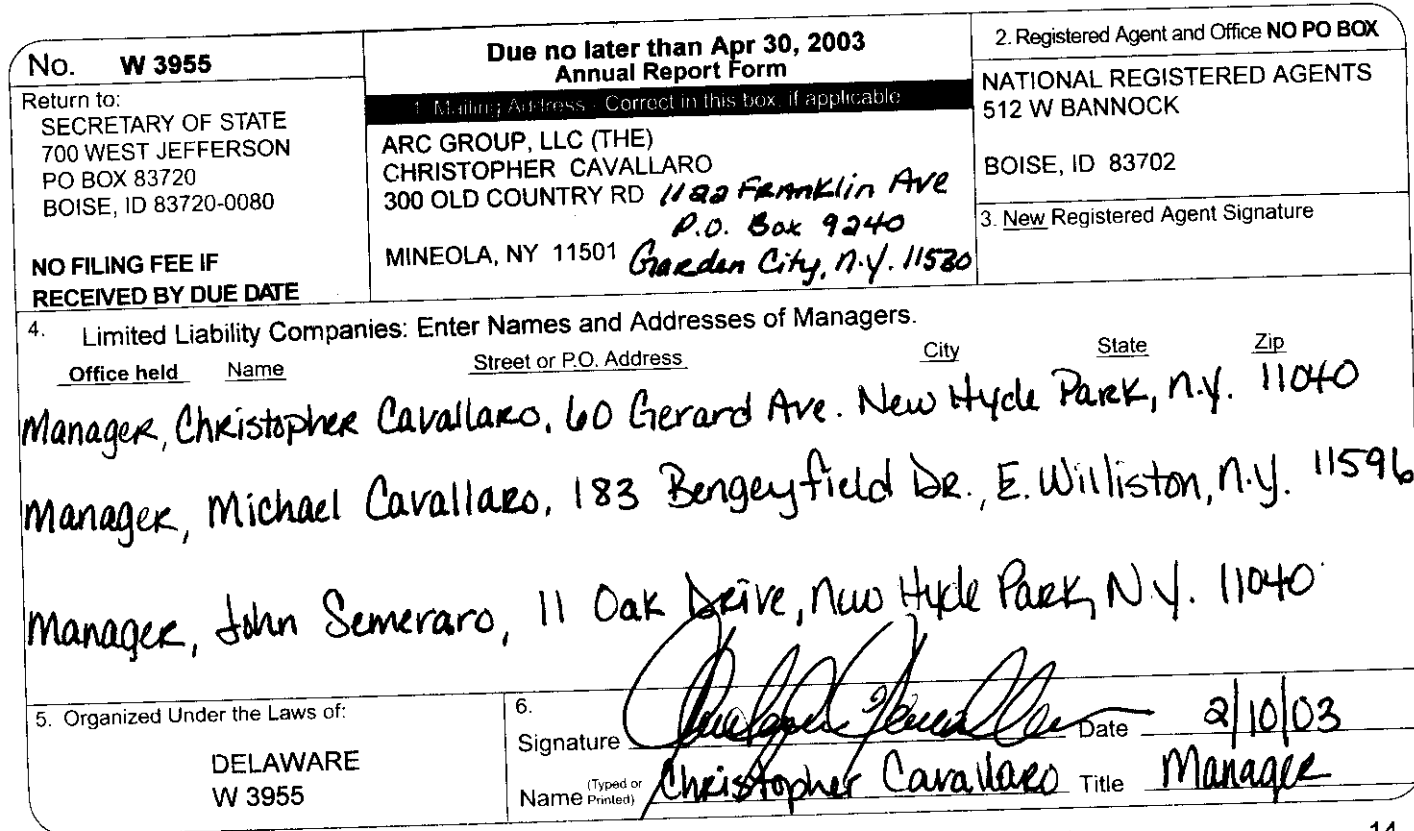 No. W 3955
Return to:
SECRETARY OF STATE
700 WEST JEFFERSON
PO BOX 83720
BOISE, ID 83720-0080
NO FILING FEE IF
RECEIVED BY DUE DATE
Due no later than Apr 30, 2003
Annual Report Form
1. Mailing Address - Correct in this box, if applicable
ARC GROUP, LLC (THE)
CHRISTOPHER CAVALLARO
300 OLD COUNTRY RD 1122 Franklin Ave
P.O. Box 9240
MINEOLA, NY 11501 Garden City, N.Y. 11530
2. Registered Agent and Office NO PO BOX
NATIONAL REGISTERED AGENTS
512 W BANNOCK
BOISE, ID 83702
3. New Registered Agent Signature
4. Limited Liability Companies: Enter Names and Addresses of Managers.
Office held Name Street or P.O. Address City State Zip
Manager, Christopher Cavallaro, 60 Gerard Ave. New Hyde Park, N.Y. 11040
Manager, Michael Cavallaro, 183 Bengeyfield Dr., E. Williston, N.Y. 11596
Manager, John Semeraro, 11 Oak Drive, New Hyde Park, N.Y. 11040
5. Organized Under the Laws of:
DELAWARE
W 3955
6.
Signature Date 2/10/03
Name (Typed or Printed) Christopher Cavallaro Title Manager
14